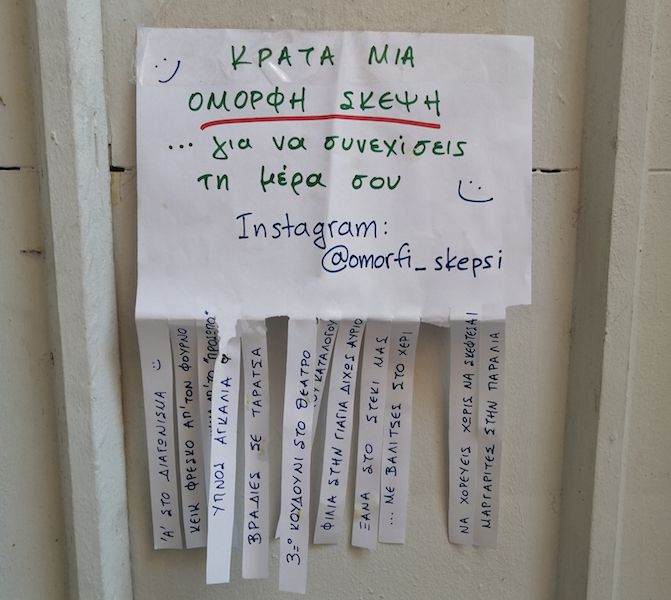 ΚΡΑΤΑ ΜΙΑ
ΟΜΟΡΦΗ ΣΚΕΨΗ
... για να συνεχίσεις
τη μέρα σου
Instagram:
@omorfi_skepsi
"Α" ΣΤΟ ΔΙΑΓΩΝΙΣΜΑ
ΚΕΙΚ ΦΡΕΣΚΟ ΑΠ'ΤΟΝ ΦΟΥΡΝΟ
ΥΠΝΟΣ ΑΓΚΑΛΙΑ
ΒΡΑΔΙΕΣ ΣΕ ΤΑΡΑΤΣΑ
3ο ΚΟΥΔΟΥΝΙ ΣΤΟ ΘΕΑΤΡΟ
ΚΑΤΑΛΟΓΟΥ
ΦΙΛΙΑ ΣΤΗΝ ΓΙΑΓΙΑ ΔΙΧΩΣ ΑΥΡΙΟ
ΞΑΝΑ ΣΤΟ ΣΤΕΚΙ ΜΑΣ
... ΜΕ ΒΑΛΙΤΣΕΣ ΣΤΟ ΧΕΡΙ
ΝΑ ΧΟΡΕΥΕΙΣ ΧΩΡΙΣ ΝΑ ΣΚΕΦΤΕΣΑΙ
ΜΑΡΓΑΡΙΤΕΣ ΣΤΗΝ ΠΑΡΑΛΙΑ